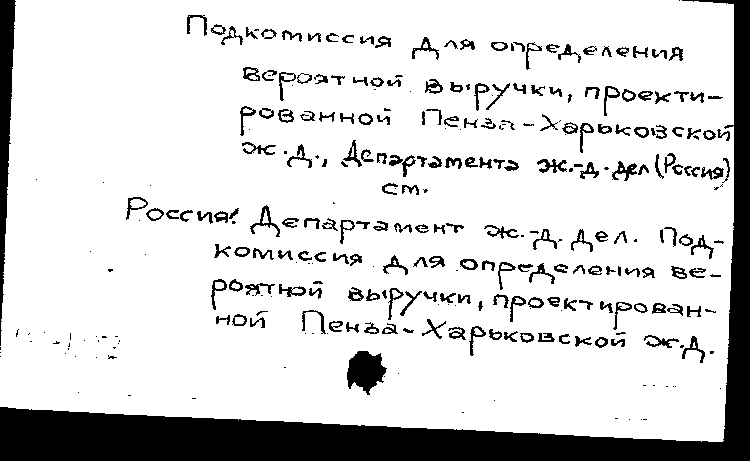 Подкомиссия для определения
вероятной выручки, проекти-
рованной Пенза-Харьковской
ж.д., Департамента ж.-д. дел (Россия)
см.
Россия! Департамент ж.-д. дел. Под-
комиссия для определения ве-
роятной выручки, проектирован-
ной Пенза-Харьковской ж.д.